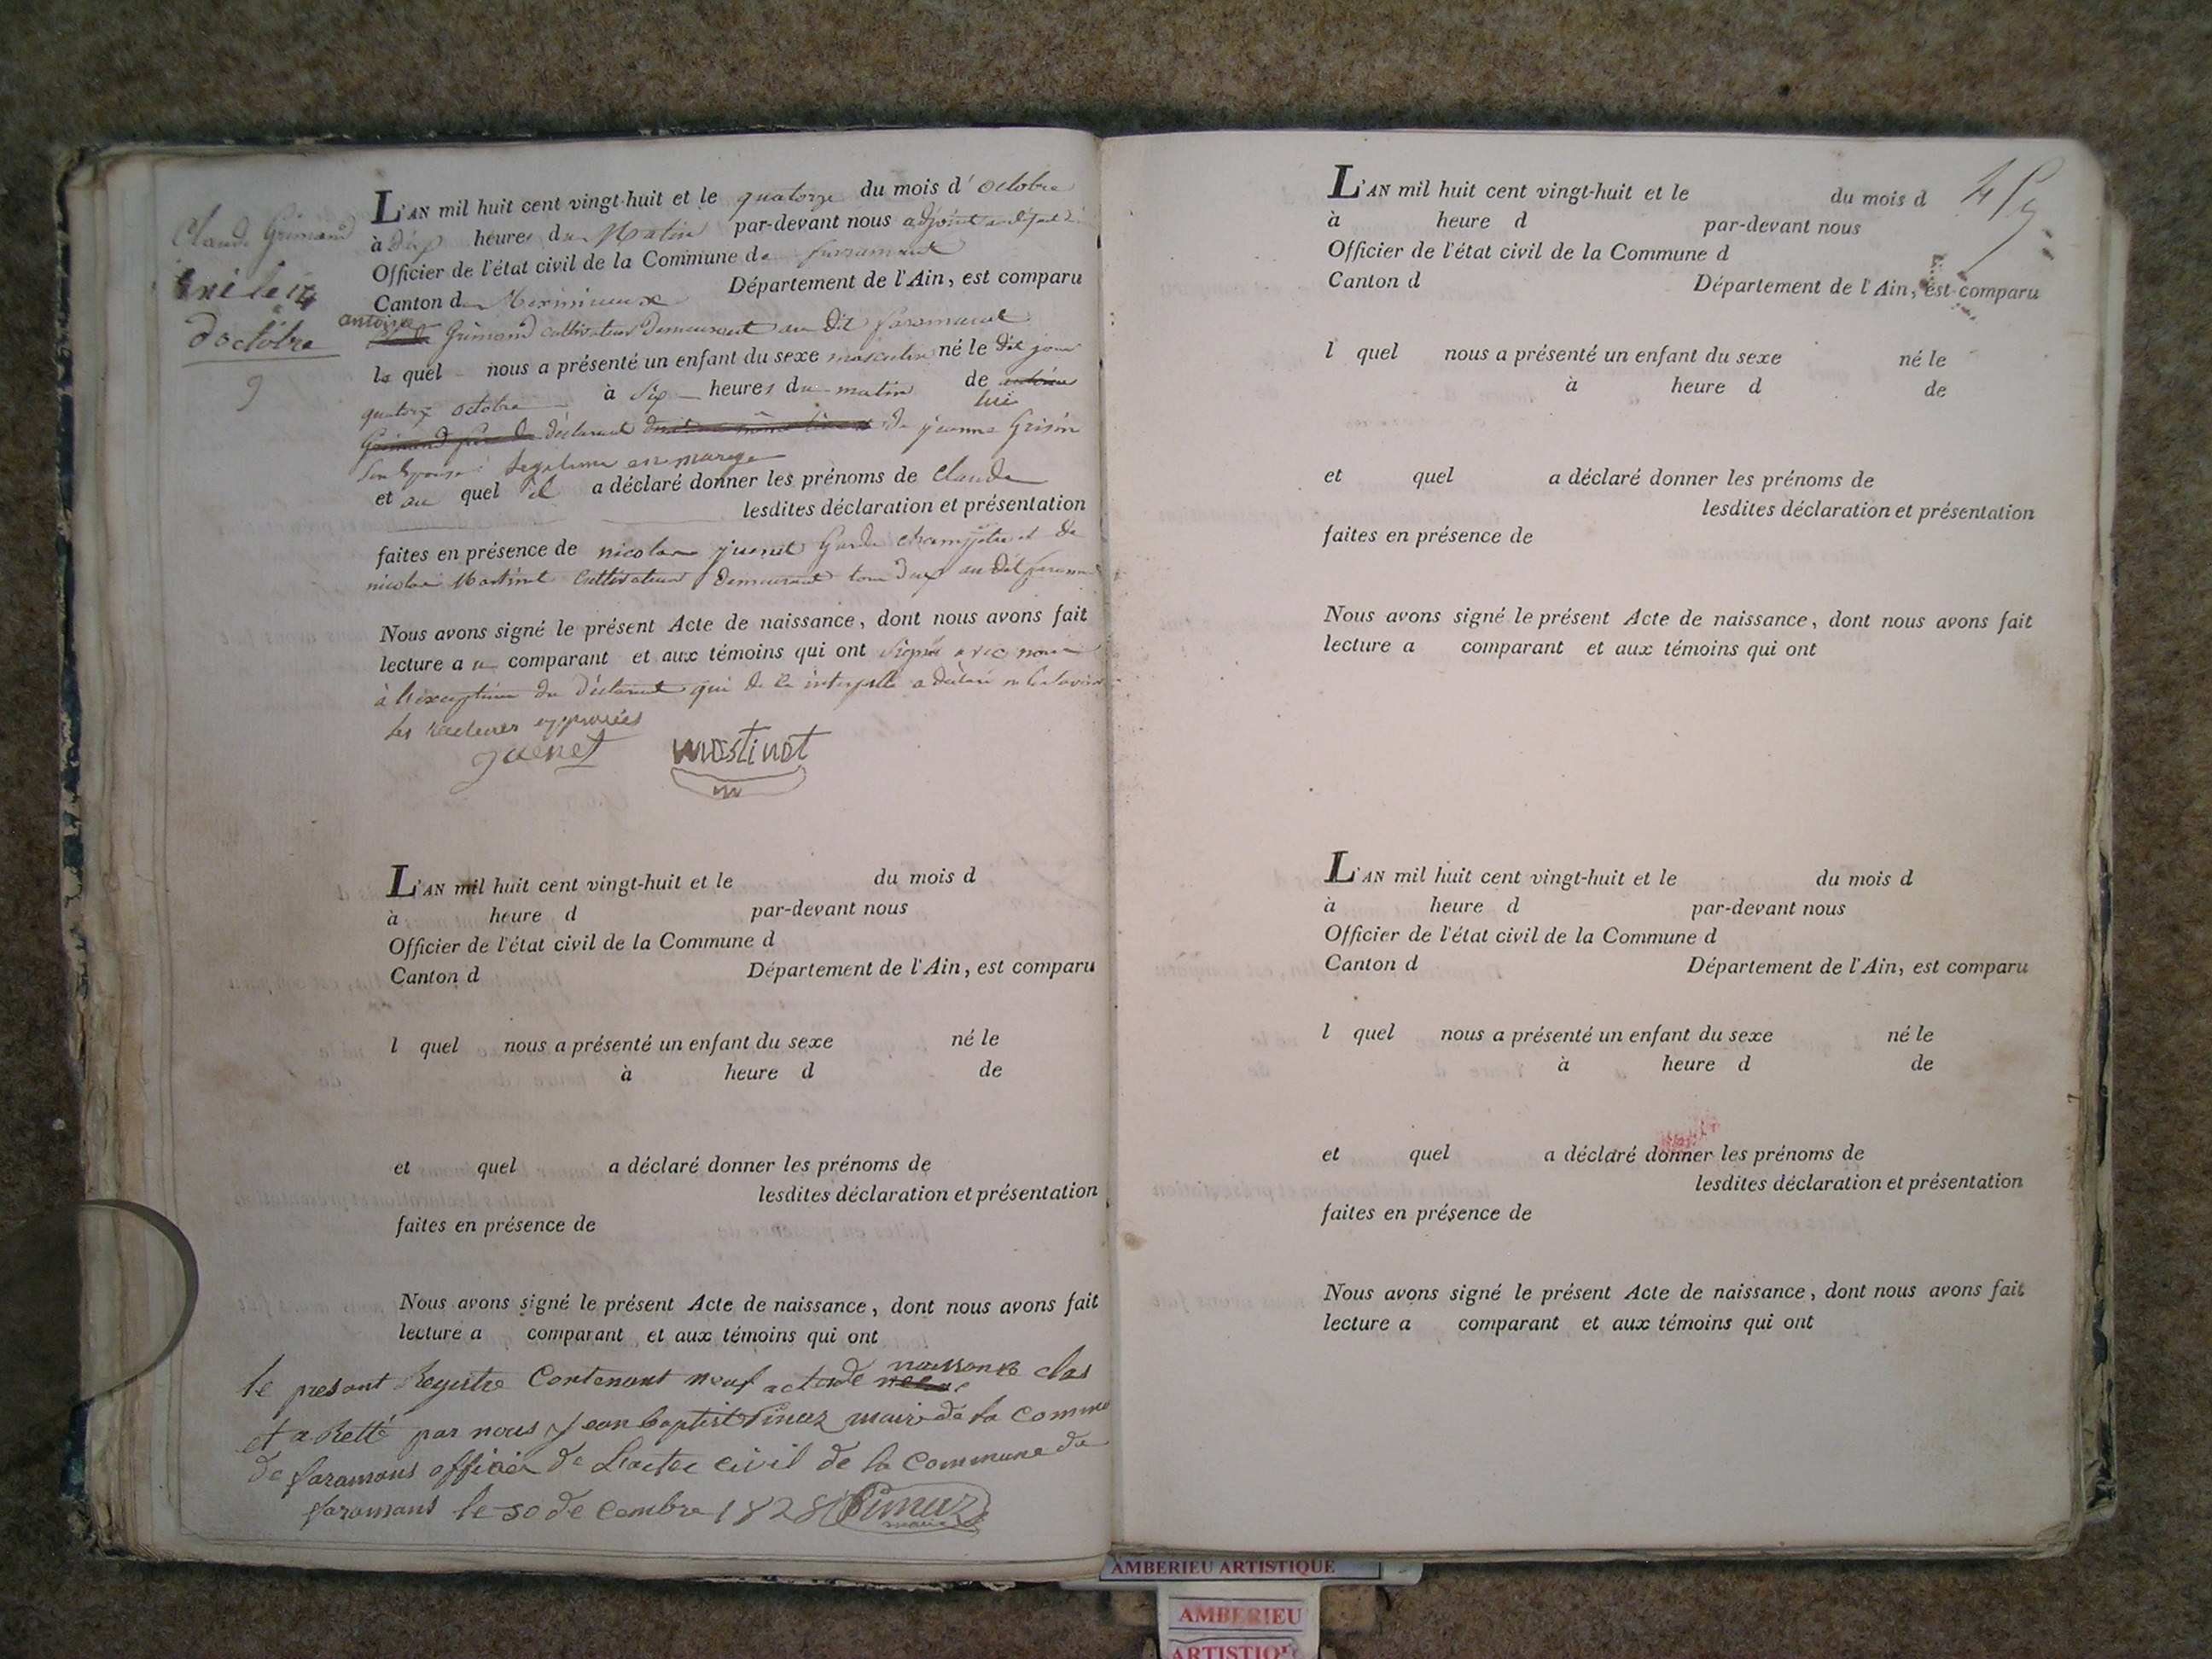 Claude Grimand
né le 14
d'octobre
9
L'AN mil huit cent vingt-huit et le quatorze du mois d'octobre
à dix heures du Matin par-devant nous adjoint
Officier de l'état civil de la Commune de
Canton de Meximieux Département de l'Ain, est comparu
antoine
Grimand cultivateur demeurant au dit faramant
le quel nous a présenté un enfant du sexe masculin né le dit jour
quatorze octobre à six heures du matin de
lui
déclarant de jeanne Grisin
son Epouse
et au quel il a déclaré donner les prénoms de Claude
lesdites déclaration et présentation
faites en présence de nicolas juenet Garde champêtre et de
nicolas Martinet Cultivateur demeurant tous deux au dit
Nous avons signé le présent Acte de naissance, dont nous avons fait
lecture au comparant et aux témoins qui ont signé avec nous
à l'exception du déclarant qui de ce a déclaré ne le savoir
les
juenet
L'AN mil huit cent vingt-huit et le du mois d
à heure d par-devant nous
Officier de l'état civil de la Commune d
Canton d Département de l'Ain, est comparu
l quel nous a présenté un enfant du sexe né le
à heure d de
et quel a déclaré donner les prénoms de
lesdites déclaration et présentation
faites en présence de
Nous avons signé le présent Acte de naissance, dont nous avons fait
lecture a comparant et aux témoins qui ont
naissance
le presant Registre Contenant neuf acte de clos
et par nous jean baptist Pinaz maire de la
de faramans officier de civil de la Commune de
faramans le 30 decembre 1828 Pinaz
maire
L'AN mil huit cent vingt-huit et le du mois d
à heure d par-devant nous
Officier de l'état civil de la Commune d
Canton d Département de l'Ain, est comparu
l quel nous a présenté un enfant du sexe né le
à heure d de
et quel a déclaré donner les prénoms de
lesdites déclaration et présentation
faites en présence de
Nous avons signé le présent Acte de naissance, dont nous avons fait
lecture a comparant et aux témoins qui ont
L'AN mil huit cent vingt-huit et le du mois d
à heure d par-devant nous
Officier de l'état civil de la Commune d
Canton d Département de l'Ain, est comparu
l quel nous a présenté un enfant du sexe né le
à heure d de
et quel a déclaré donner les prénoms de
lesdites déclaration et présentation
faites en présence de
Nous avons signé le présent Acte de naissance, dont nous avons fait
lecture a comparant et aux témoins qui ont
AMBERIEU ARTISTIQUE
AMBERIEU